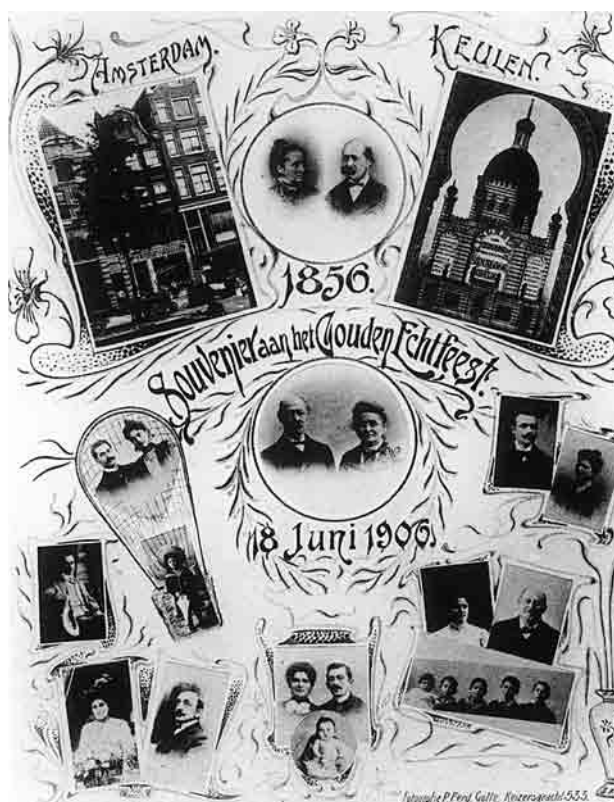 AMSTERDAM.
KEULEN.
1856.
Souvenier aan het Gouden Echtfeest.
18 Juni 1906.
Fotografie P. Ferd. Galle, Keizersgracht 535.